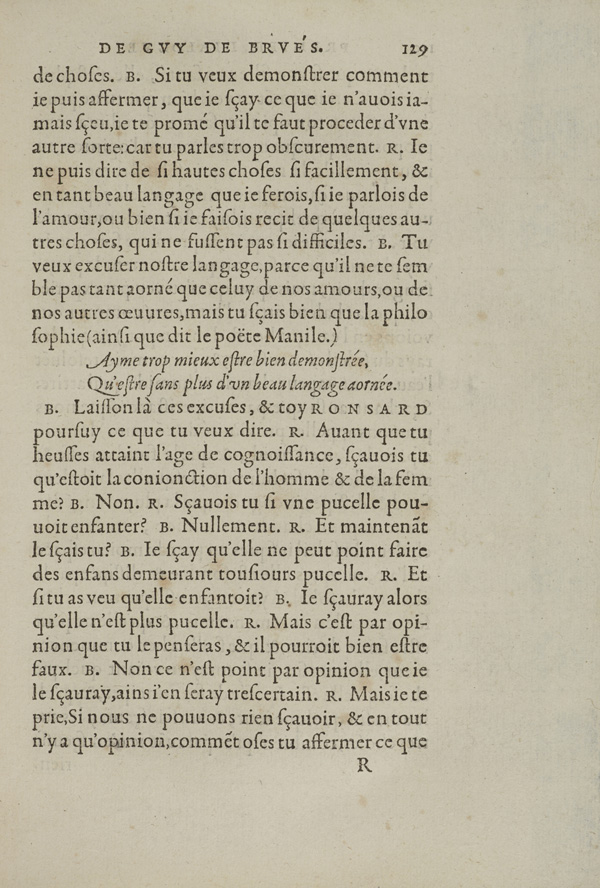 DE GVY DE BRVÉS. 129
de choſes. B. Si tu veux demonſtrer comment
ie puis affermer, que ie ſçay ce que ie n'auois ia-
mais ſçeu, ie te promé qu'il te faut proceder d'vne
autre ſorte: car tu parles trop obſcurement. R. Ie
ne puis dire de ſi hautes choſes ſi facillement, &
en tant beau langage que ie ferois, ſi ie parlois de
l'amour, ou bien ſi ie faiſois recit de quelques au-
tres choſes, qui ne fuſſent pas ſi difficiles. B. Tu
veux excuſer noſtre langage, parce qu'il ne te ſem
ble pas tant aorné que celuy de nos amours, ou de
nos autres œuures, mais tu ſçais bien que la philo
ſophie (ainſi que dit le poëte Manile.)
Ayme trop mieux eſtre bien demonſtrée,
Qu'eſtre ſans plus d'vn beau langage aornée.
B. Laiſſon là ces excuſes, & toy RONSARD
pourſuy ce que tu veux dire. R. Auant que tu
heuſſes attaint l'age de cognoiſſance, ſçauois tu
qu'eſtoit la conionction de l'homme & de la fem
me? B. Non. R. Sçauois tu ſi vne pucelle pou-
uoit enfanter? B. Nullement. R. Et maintenãt
le ſçais tu? B. Ie ſçay qu'elle ne peut point faire
des enfans demeurant touſiours pucelle. R. Et
ſi tu as veu qu'elle enfantoit? B. Ie ſçauray alors
qu'elle n'eſt plus pucelle. R. Mais c'eſt par opi-
nion que tu le penſeras, & il pourroit bien eſtre
faux. B. Non ce n'eſt point par opinion que ie
le ſçauray, ains i'en ſeray treſcertain. R. Mais ie te
prie, Si nous ne pouuons rien ſçauoir, & en tout
n'y a qu'opinion, commẽt oſes tu affermer ce que
R